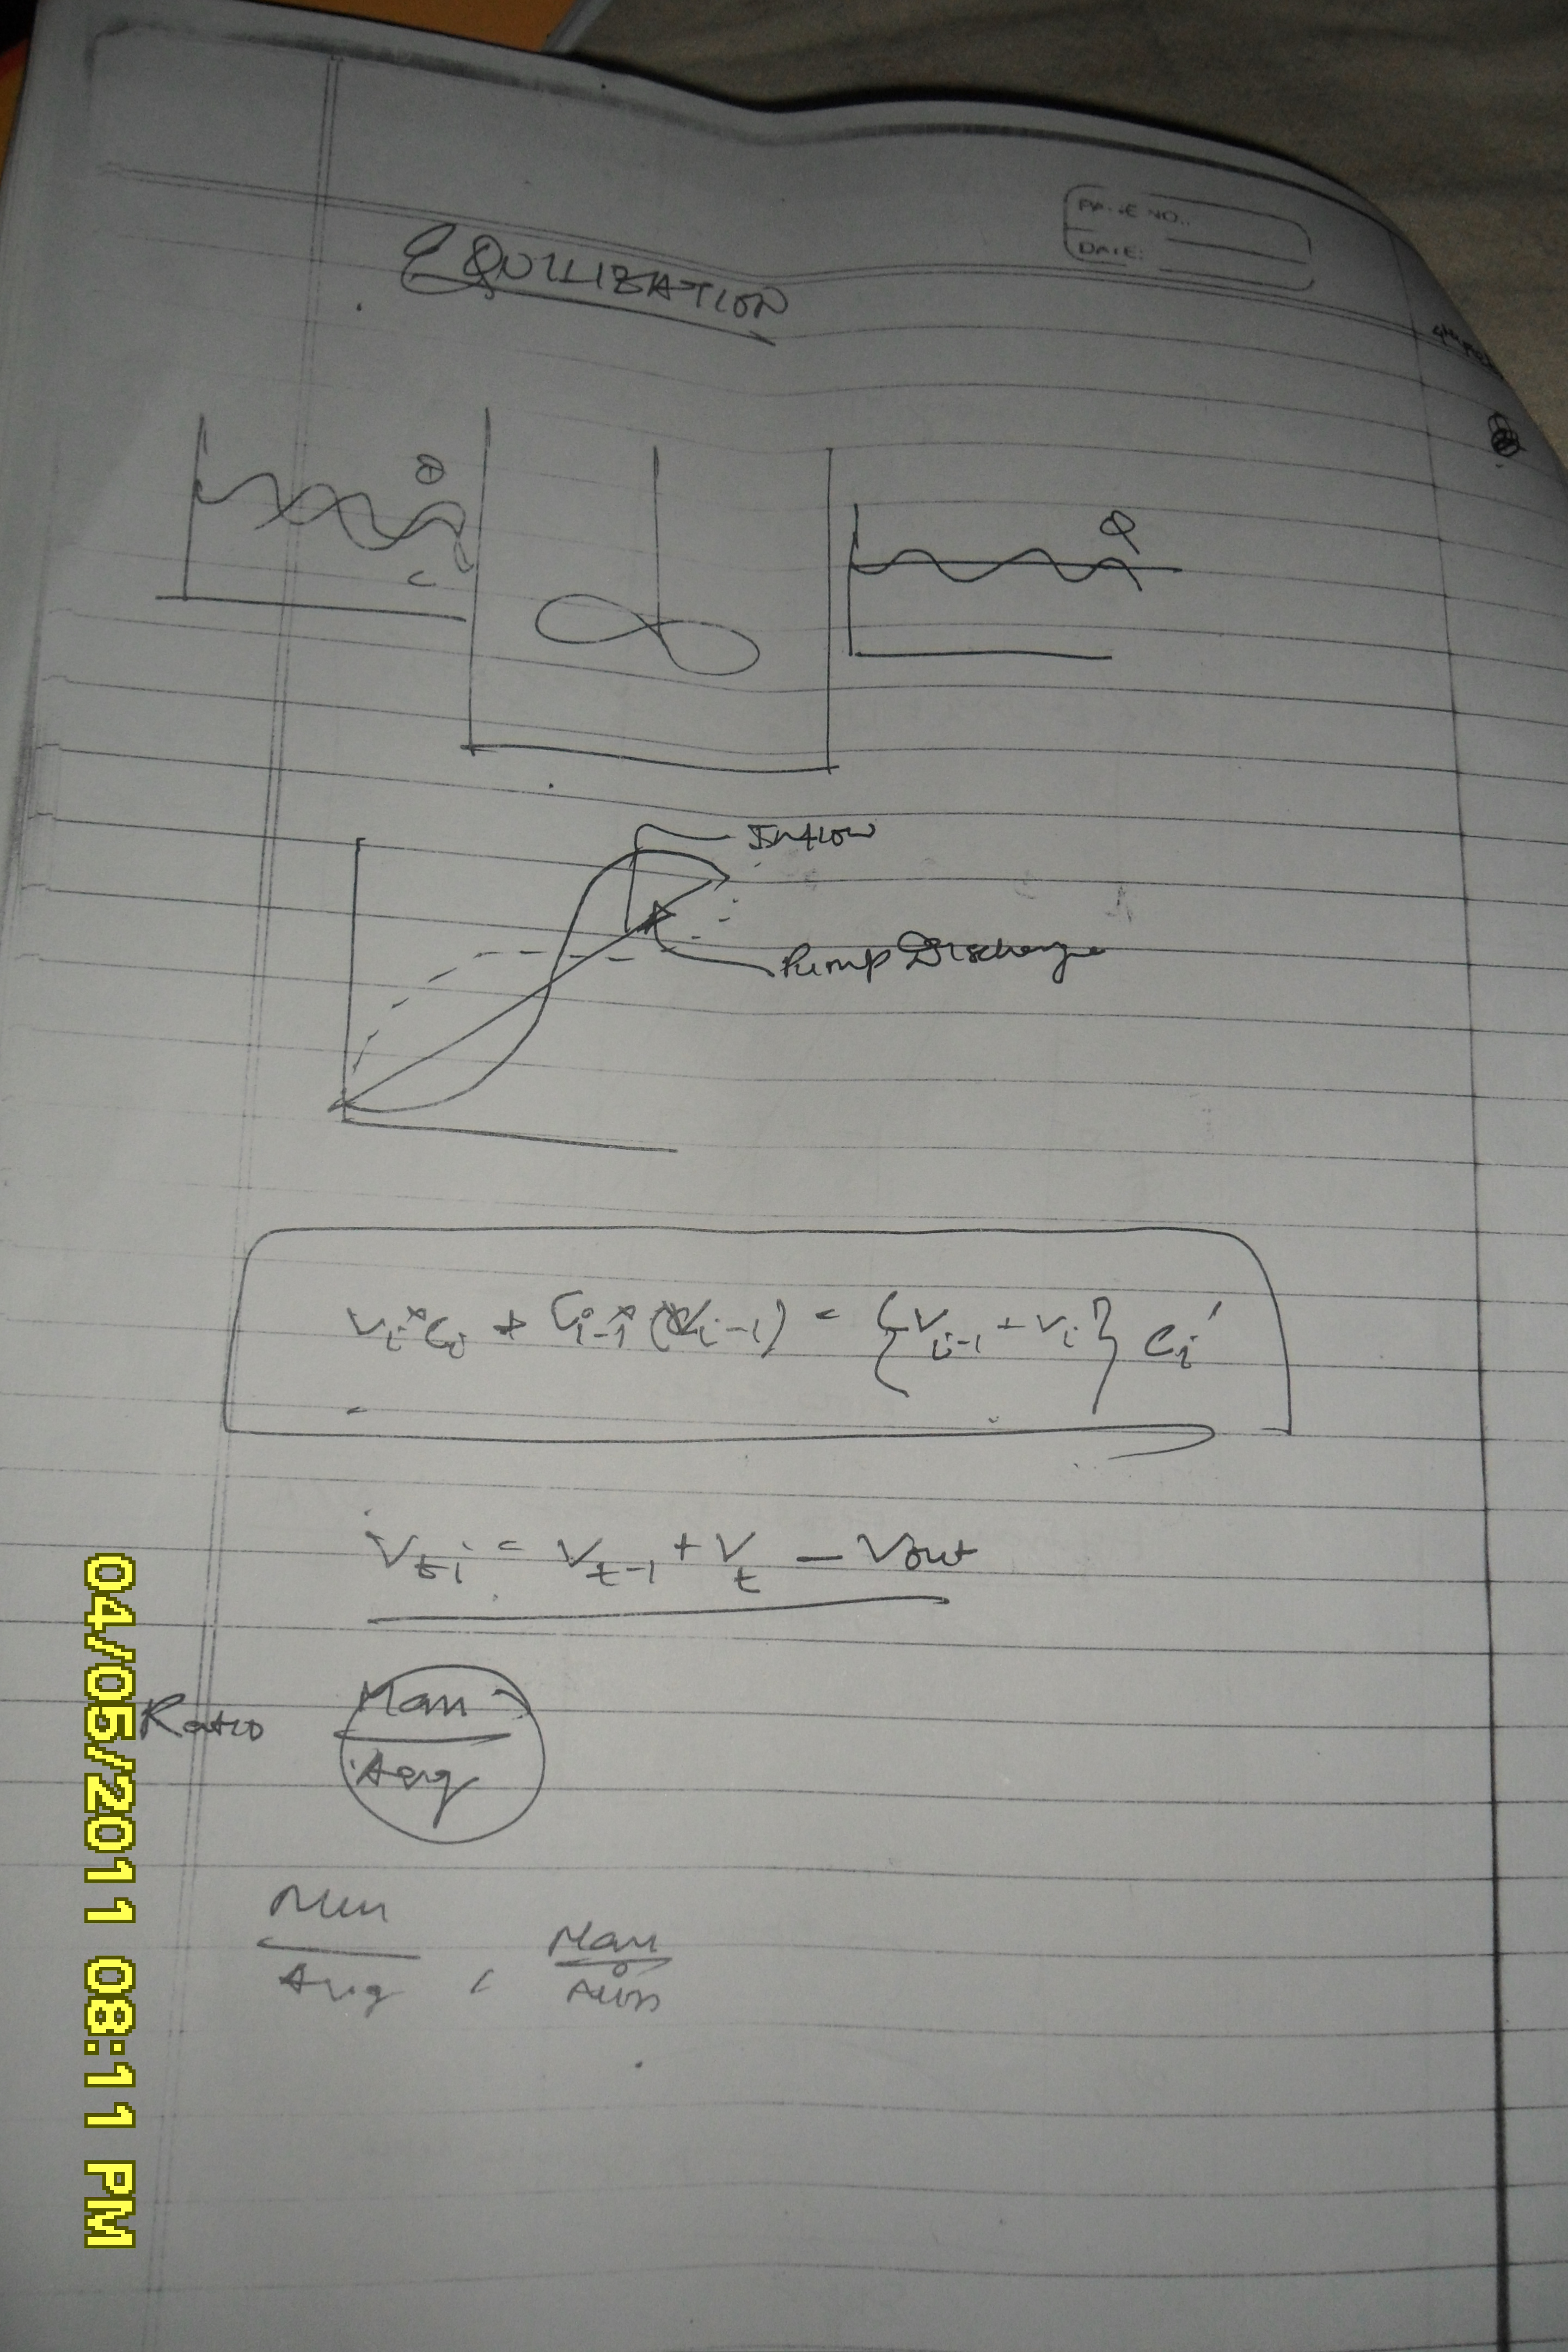 PAGE NO.:
DATE:
EQULIZATION
Q
C
Q
Inflow
Pump Discharge
Vi*Ci + Ci-1*(Vi-1) = {Vi-1 + Vi} Ci'
Vti = Vt-1 + Vt - Vout
Ratio Max
Avg
Min
Avg , Max
Min
04/05/2011 08:11 PM